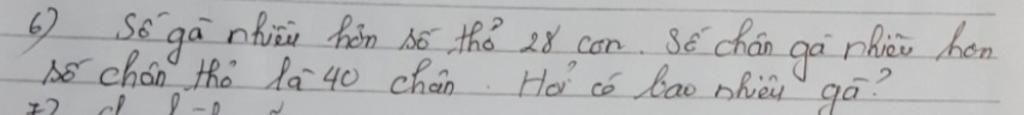 6) Số gà nhiều hơn số thỏ 28 con. Số chân gà nhiều hơn
số chân thỏ là 40 chân. Hỏi có bao nhiêu gà?
7)